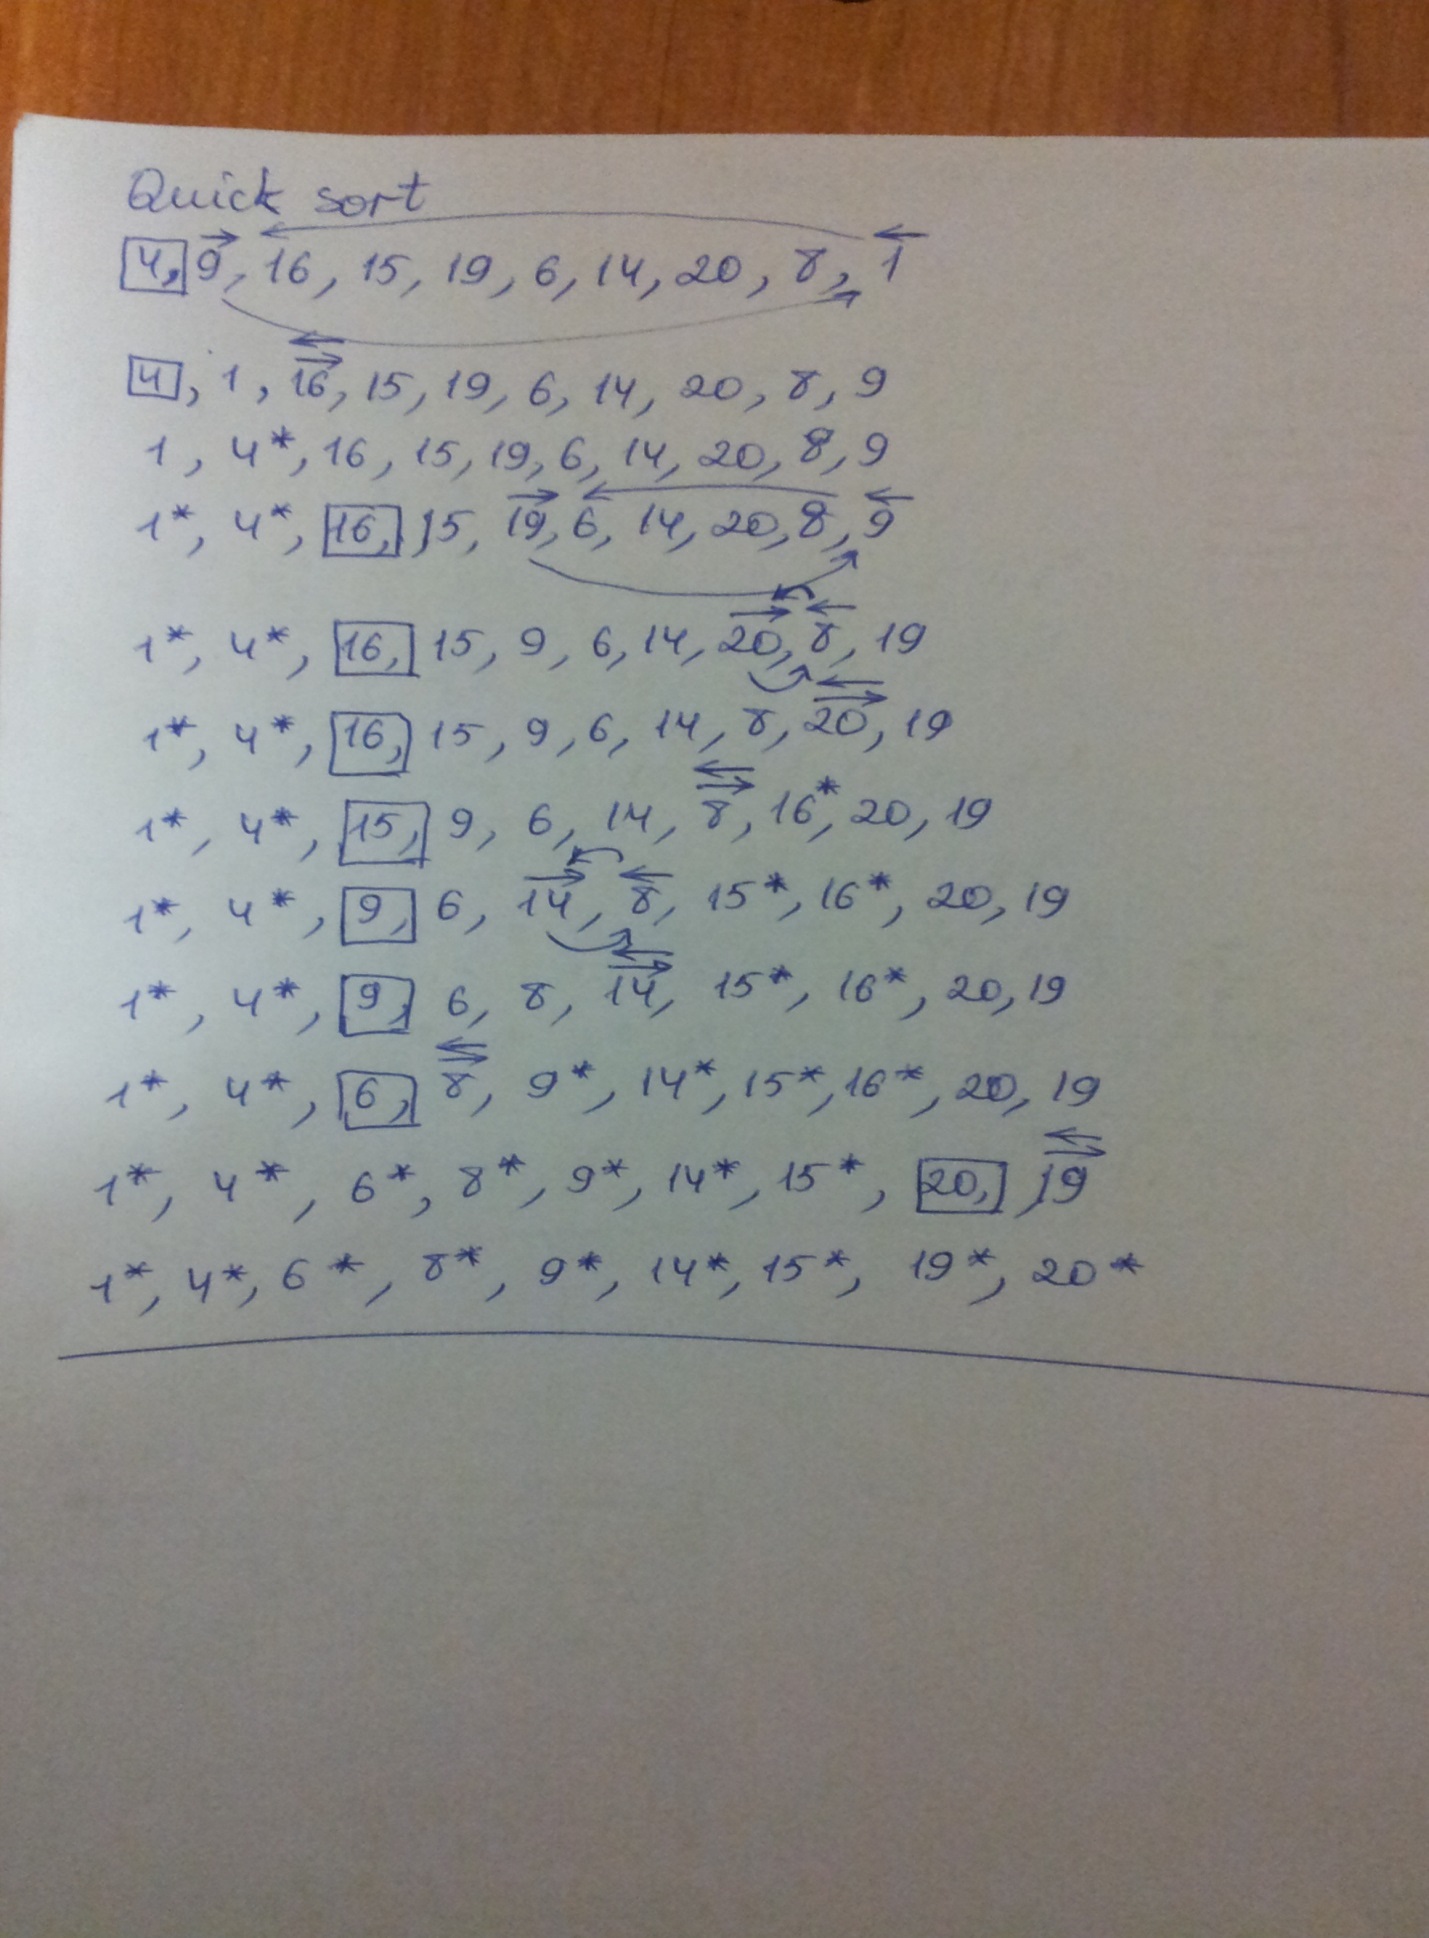 Quick sort
4, 9, 16, 15, 19, 6, 14, 20, 8, 1
4, 1, 16, 15, 19, 6, 14, 20, 8, 9
1, 4*, 16, 15, 19, 6, 14, 20, 8, 9
1*, 4*, 16, 15, 19, 6, 14, 20, 8, 9
1*, 4*, 16, 15, 9, 6, 14, 20, 8, 19
1*, 4*, 16, 15, 9, 6, 14, 8, 20, 19
1*, 4*, 15, 9, 6, 14, 8, 16*, 20, 19
1*, 4*, 9, 6, 14, 8, 15*, 16*, 20, 19
1*, 4*, 9, 6, 8, 14, 15*, 16*, 20, 19
1*, 4*, 6, 8, 9*, 14*, 15*, 16*, 20, 19
1*, 4*, 6*, 8*, 9*, 14*, 15*, 20, 19
1*, 4*, 6*, 8*, 9*, 14*, 15*, 19*, 20*